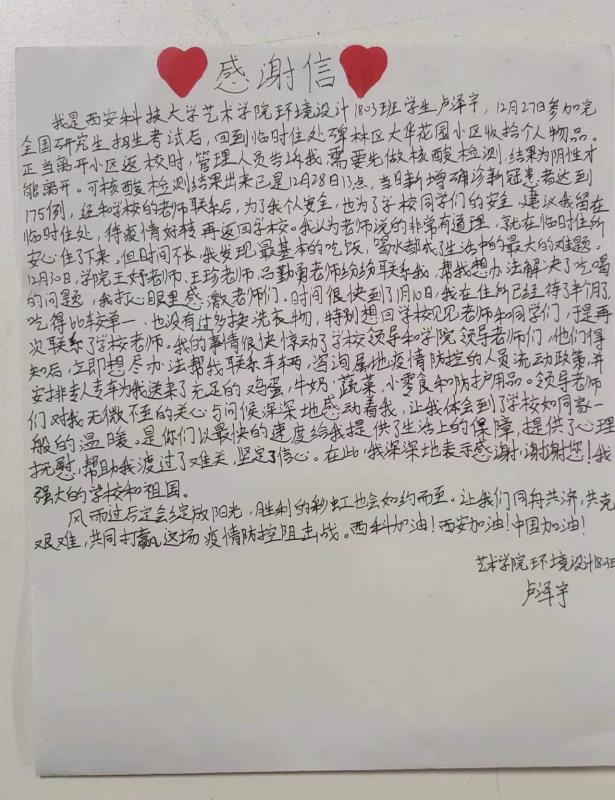 感谢信
我是西安科技大学艺术学院环境设计1803班学生卢泽宇，12月27日参加完
全国研究生招生考试后，回到临时住处碑林区大华花园小区收拾个人物品。
正当离开小区返校时，管理人员告诉我，需要先做核酸检测，结果为阴性才
能离开。可核酸检测结果出来已是12月28日13点，当日新增确诊新冠患者达到
175例，经和学校的老师联系后，为了我个人安全，也为了学校同学们的安全，建议我留在
临时住处，待疫情好转再返回学校。我认为老师说的非常有道理，就在临时住所
安心住了下来。但时间不长，我发现最基本的吃饭，喝水都成了生活中的最大的难题。
12月30日，学院王妤老师、王珍老师、吕勤勇老师纷纷联系我，帮我想办法解决了吃喝
的问题，我打心眼里感激老师们。时间很快到了1月10日，我在住所已经待了半个月了，
吃得比较单一、也没有过多换洗衣物，特别想回学校见见老师和同学们，于是再
次联系了学校老师，我的事情很快惊动了学校领导和学院领导老师们，他们得
知后，立即想尽办法帮我联系车辆，咨询属地疫情防控的人员流动政策，并
安排专人专车为我送来了充足的鸡蛋，牛奶，蔬菜，小零食和防护用品。领导老师
们对我无微不至的关心与问候深深地感动着我，让我体会到了学校如同家一
般的温暖。是你们以最快的速度给我提供了生活上的保障，提供了心理
抚慰，帮助我渡过了难关，坚定了信心。在此，我深深地表示感谢，谢谢您！我
强大的学校和祖国。
风雨过后定会绽放阳光，胜利的彩虹也会如约而至。让我们同舟共济，共克
艰难，共同打赢这场疫情防控阻击战。西科加油！西安加油！中国加油！
艺术学院环境设计1803班
卢泽宇